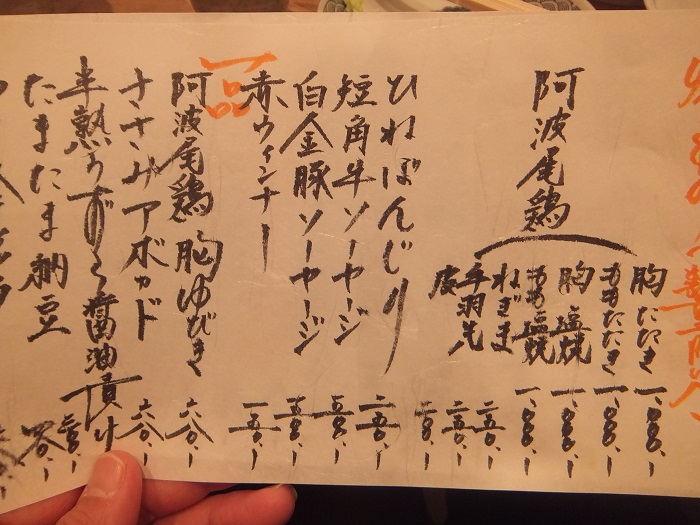 阿波尾鶏
胸たたき 一、〇〇〇.ー
ももたたき 一、〇〇〇.ー
胸塩焼 一、〇〇〇.ー
もも塩焼 一、〇〇〇.ー
ねぎま 二五〇.ー
手羽先 二五〇.ー
皮 二〇〇.ー
ひねぼんじり 二五〇.ー
短角牛ソーセージ
白金豚ソーセージ
赤ウィンナー
一品
阿波尾鶏胸ゆびき 六〇〇.ー
ささみアボカド 六〇〇.ー
半熟うずら醤油漬け
たまたま納豆